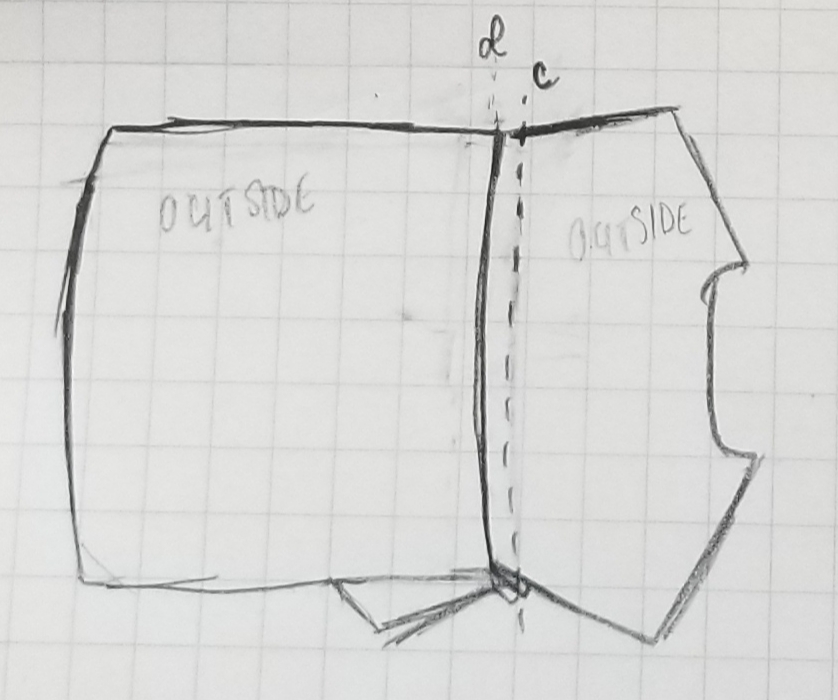 d
c
OUTSIDE
OUTSIDE